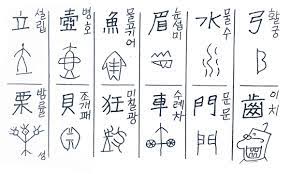 立 설립
壺 병호
魚 물고기어
眉 눈썹미
水 물수
弓 활궁
栗 밤률
貝 조개패
狂 미칠광
車 수레차
門 문문
齒 이치
성